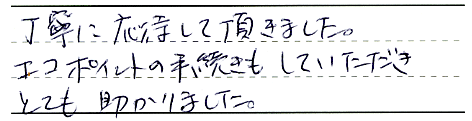 丁寧に応待して頂きました。
エコポイントの手続きもしていただき
とても助かりました。